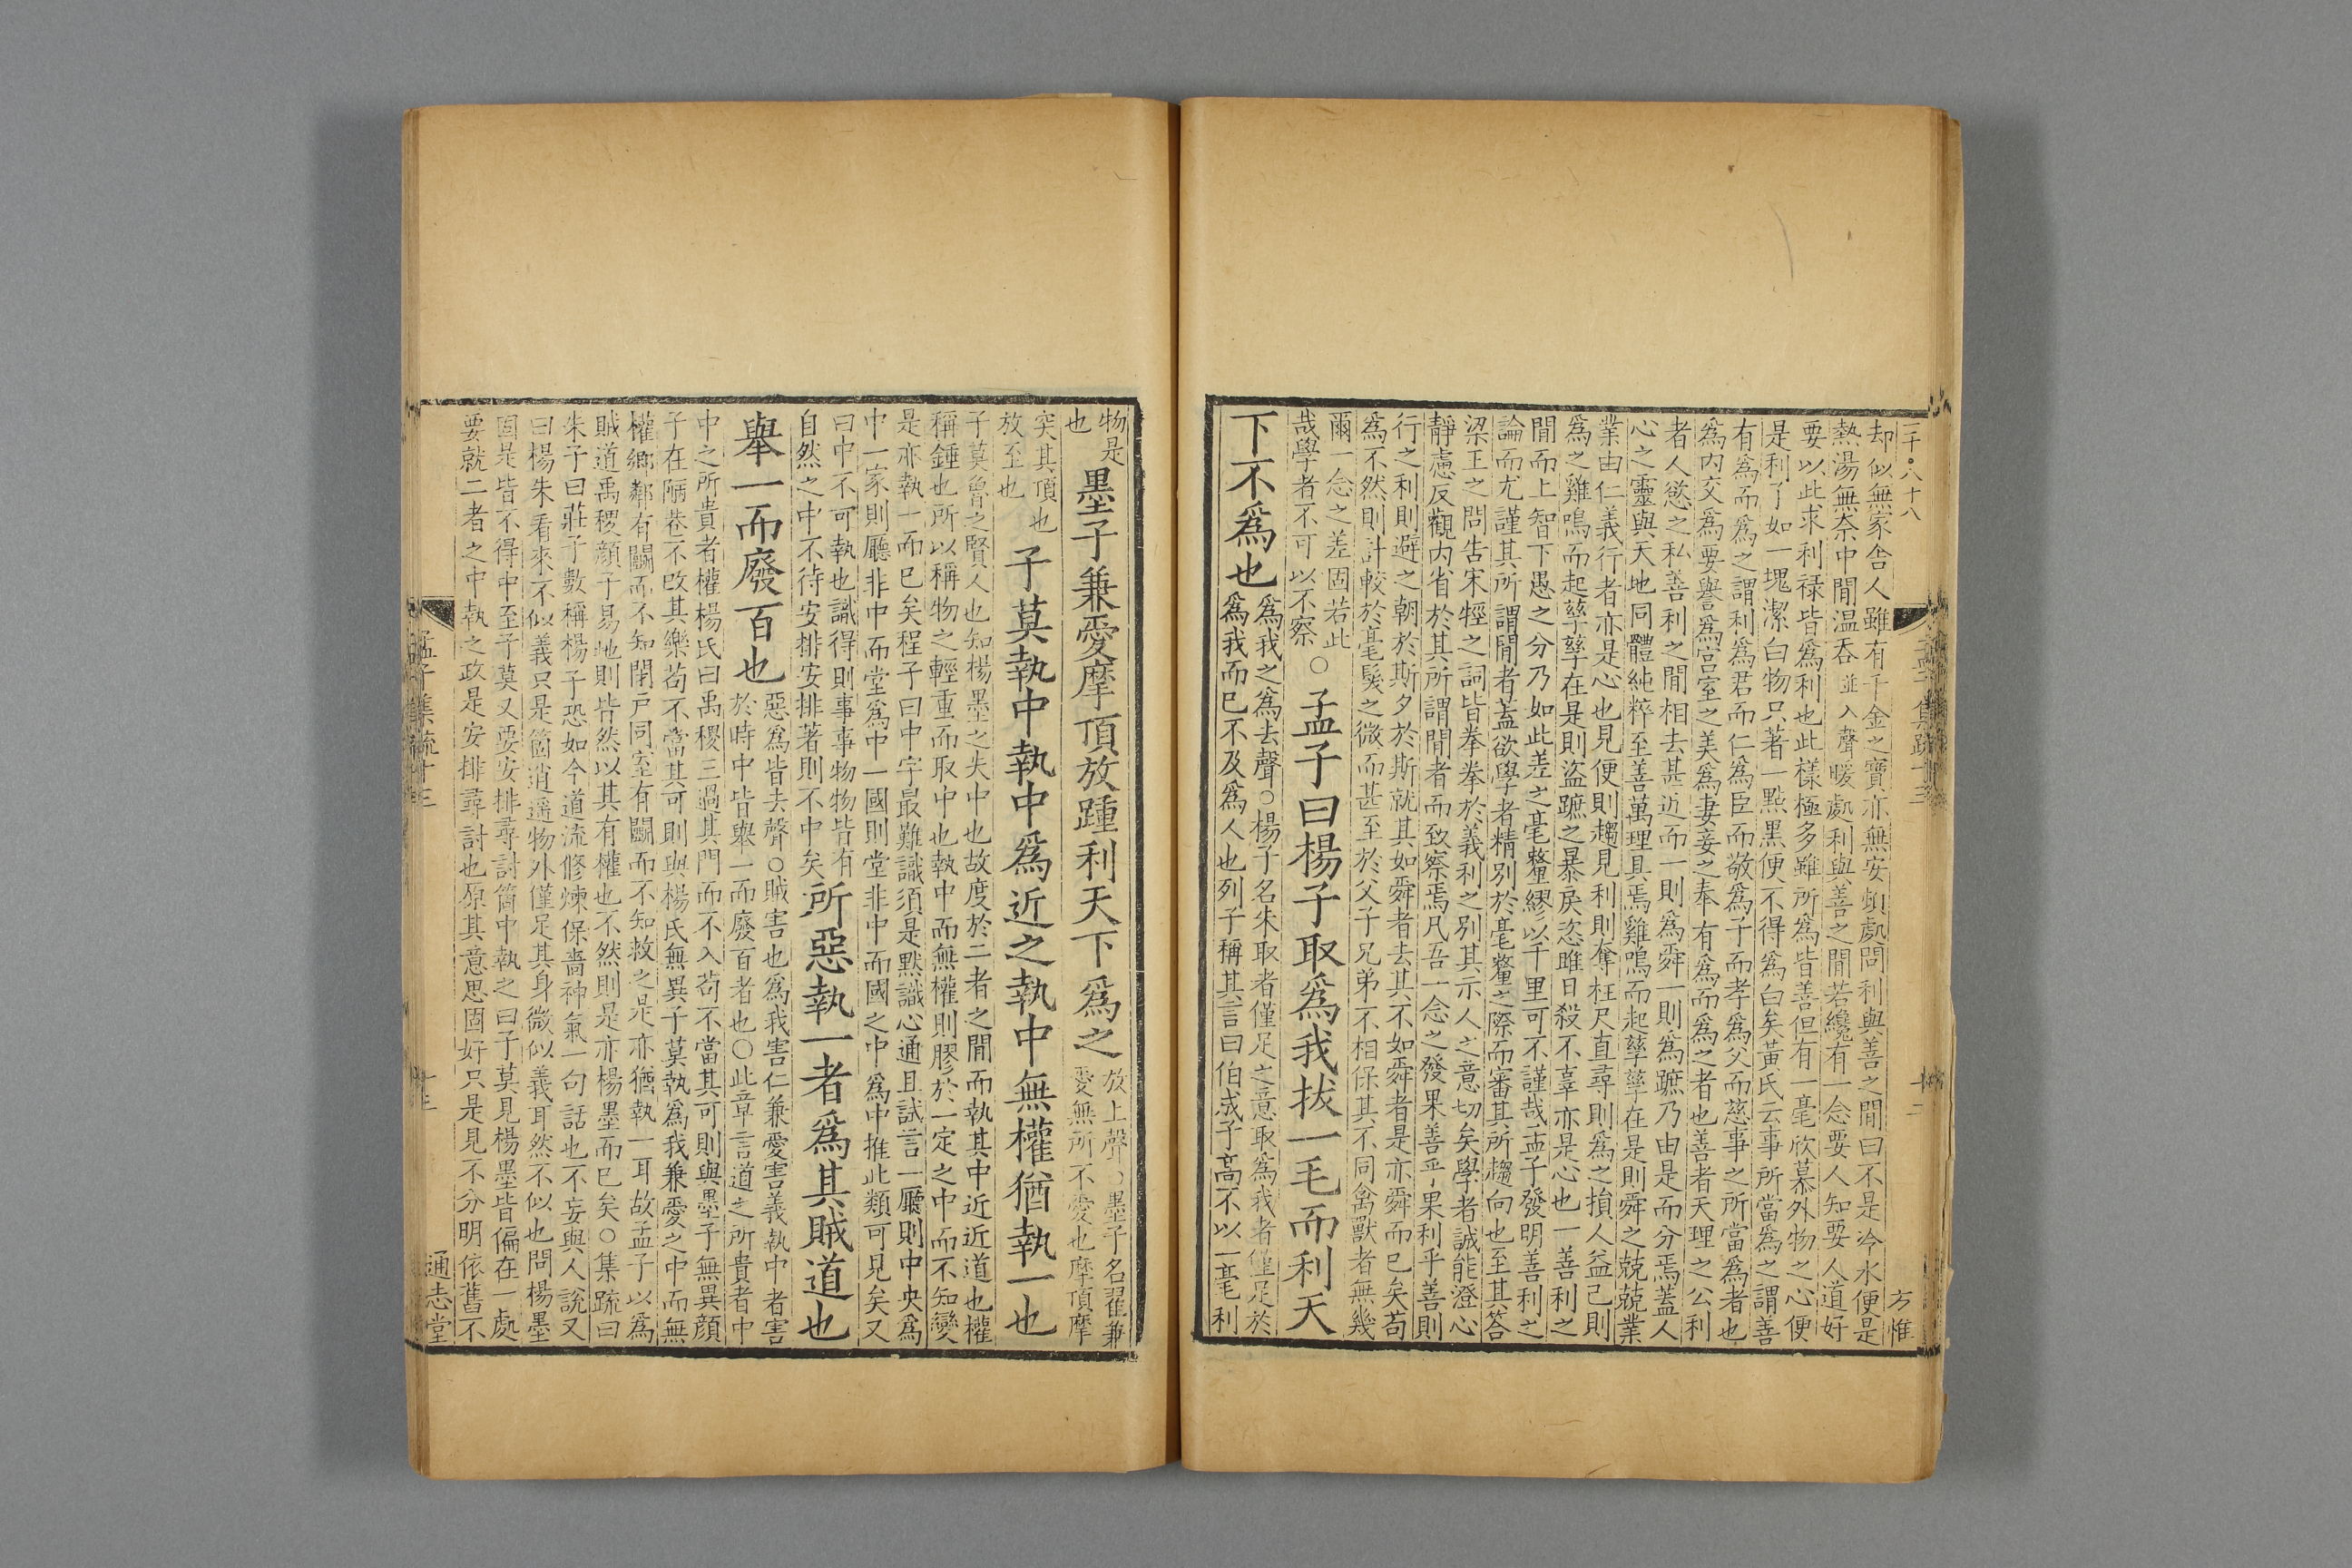 二千〇八十八
却似無家舍人雖有千金之寶亦無安頓處問利與善之閒曰不是冷水便是
熱湯無奈中閒温吞並入聲暖處利與善之閒若纔有一念要人知要人道好
要以此求利祿皆爲利也此樣極多雖所爲皆善但有一毫欣慕外物之心便
是利了如一塊潔白物只著一㸃黑便不得爲白矣黄氏云事所當爲之謂善
有爲而爲之謂利爲君而仁爲臣而敬爲子而孝爲父而慈事之所當爲者也
爲内交爲要譽爲宫室之美爲妻妾之奉有爲而爲之者也善者天理之公利
者人慾之私善利之閒相去甚近而一則爲舜一則爲蹠乃由是而分焉蓋人
心之靈與天地同體純粹至善萬理具焉雞鳴而起孳孳在是則舜之兢兢業
業由仁義行者亦是心也見便則趨見利則奪枉尺直尋則爲之損人益己則
爲之雞鳴而起孳孳在是則盜蹠之暴戾恣睢日殺不辜亦是心也一善利之
閒而上智下愚之分乃如此差之毫釐繆以千里可不謹哉孟子發明善利之
論而尤謹其所謂閒者蓋欲學者精別於毫釐之際而審其所趨向也至其答
梁王之問告宋牼之詞皆拳拳於義利之別其示人之意切矣學者誠能澄心
靜慮反觀内省於其所謂閒者而致察焉凡吾一念之發果善乎果利乎善則
行之利則避之朝於斯夕於斯就其如舜者去其不如舜者是亦舜而已矣苟
爲不然則計較於毫髮之微而甚至於父子兄弟不相保其不同禽獸者無幾
爾一念之差固若此
哉學者不可以不察
○孟子曰楊子取爲我拔一毛而利天
下不爲也
爲我之爲去聲○楊子名朱取者僅足之意取爲我者僅足於
爲我而已不及爲人也列子稱其言曰伯成子高不以一毫利
孟子集疏十三
十二
方惟
物是
也
墨子兼愛摩頂放踵利天下爲之
放上聲○墨子名翟兼
愛無所不愛也摩頂摩
突其頂也
放至也
子莫執中執中爲近之執中無權猶執一也
子莫魯之賢人也知楊墨之失中也故度於二者之閒而執其中近近道也權
稱錘也所以稱物之輕重而取中也執中而無權則膠於一定之中而不知變
是亦執一而已矣程子曰中字最難識須是默識心通且試言一廳則中央爲
中一家則廳非中而堂爲中一國則堂非中而國之中爲中推此類可見矣又
曰中不可執也識得則事事物物皆有
自然之中不待安排安排著則不中矣
所惡執一者爲其賊道也
舉一而廢百也
惡爲皆去聲○賊害也爲我害仁兼愛害義執中者害
於時中皆舉一而廢百者也○此章言道之所貴者中
中之所貴者權楊氏曰禹稷三過其門而不入苟不當其可則與墨子無異顔
子在陋巷不改其樂苟不當其可則與楊氏無異子莫執爲我兼愛之中而無
權鄉鄰有鬭而不知閉戸同室有鬭而不知救之是亦猶執一耳故孟子以爲
賊道禹稷顔子易地則皆然以其有權也不然則是亦楊墨而已矣○集疏曰
朱子曰莊子數稱楊子恐如今道流修煉保嗇神氣一句話也不妄與人說又
曰楊朱看來不似義只是箇逍遥物外僅足其身微似義耳然不似也問楊墨
固是皆不得中至子莫又要安排尋討箇中執之曰子莫見楊墨皆偏在一處
要就二者之中執之政是安排尋討也原其意思固好只是見不分明依舊不
孟子集疏十三
十三
通志堂